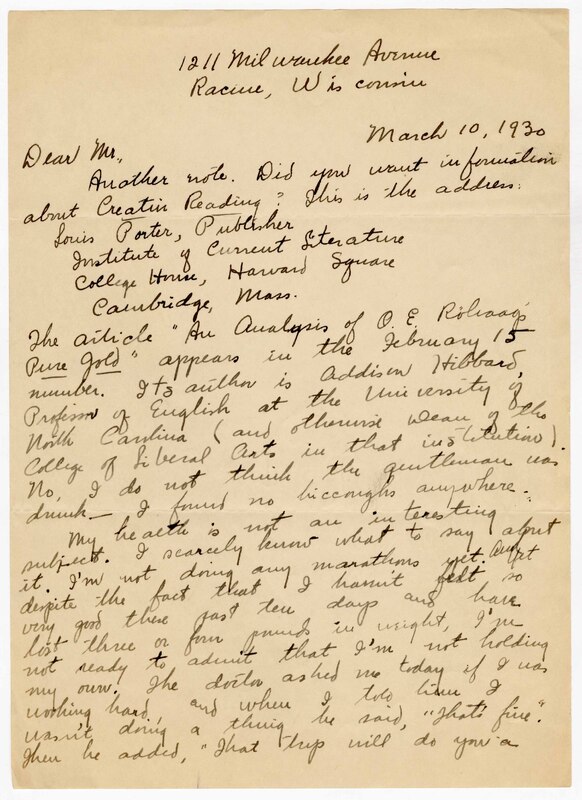 1211 Milwaukee Avenue
Racine, Wisconsin
March 10, 1930
Dear Mr.,
Another note. Did you want information
about Creative Reading? This is the address:
Louis Porter, Publisher
Institute of Current Literature
College House, Harvard Square
Cambridge, Mass.
The article "An Analysis of O. E. Rölvaag's
Pure Gold" appears in the February 15
number. Its author is Addison Hibbard,
Professor of English at the University of
North Carolina (and otherwise Dean of the
College of Liberal Arts in that institution).
No, I do not think the gentleman was
drunk — I found no hiccoughs anywhere.
My health is not an interesting
subject. I scarcely know what to say about
it. I'm not doing any marathons yet. But
despite the fact that I haven't felt so
very good these past ten days and have
lost three or four pounds in weight, I'm
not ready to admit that I'm not holding
my own. The doctor asked me today if I was
working hard, and when I told him I
wasn't doing a thing he said, "That's fine."
Then he added, "That trip will do you a